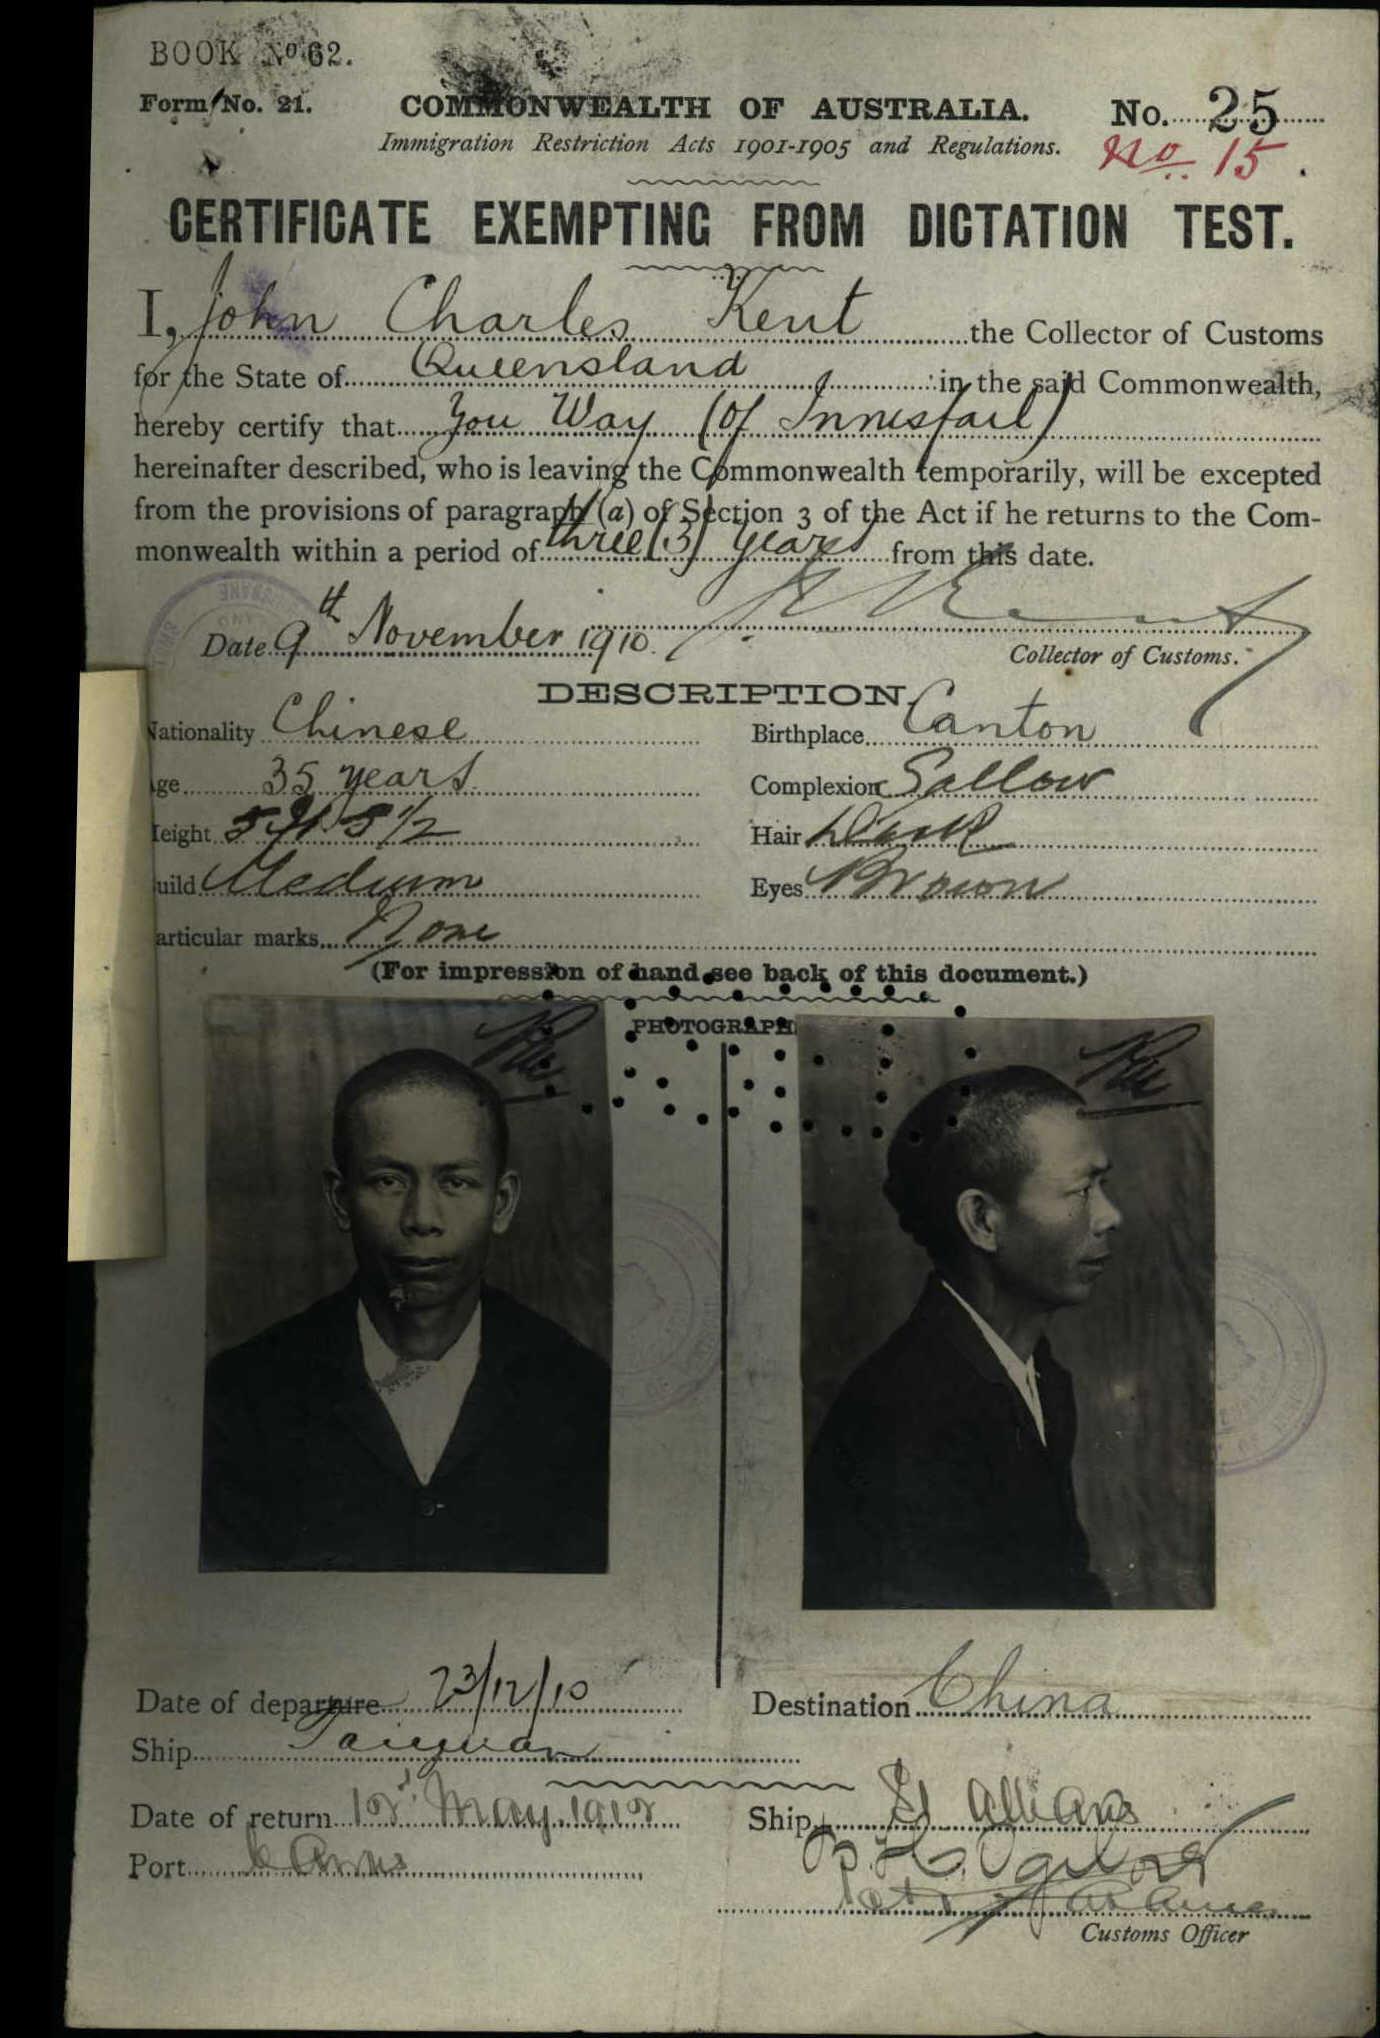 BOOK No 62.
Form No. 21.
COMMONWEALTH OF AUSTRALIA.
No. 25
Immigration Restriction Acts 1901-1905 and Regulations.
No. 15
CERTIFICATE EXEMPTING FROM DICTATION TEST.
I, John Charles Kent the Collector of Customs
for the State of Queensland in the said Commonwealth,
hereby certify that You Way (of Innisfail)
hereinafter described, who is leaving the Commonwealth temporarily, will be excepted
from the provisions of paragraph (a) of Section 3 of the Act if he returns to the Com-
monwealth within a period of three (3) years from this date.
Date 9th November 1910.
Collector of Customs.
DESCRIPTION.
Nationality Chinese
Birthplace Canton
Age 35 years
Complexion Sallow
Height 5 ft 5 1/2
Hair Dark
Build Medium
Eyes Brown
Particular marks None
(For impression of hand see back of this document.)
PHOTOGRAPH
Date of departure 23/12/10
Destination China
Ship Taiyuan
Date of return 12 May 1912
Ship St Albans
Port Cairns
Customs Officer